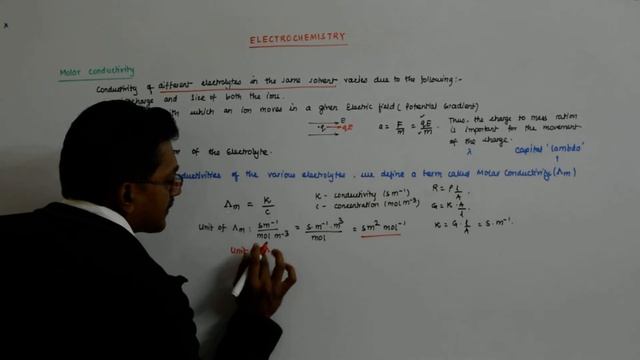 ELECTROCHEMISTRY
Molar conductivity
Conductivity of different electrolytes in the same solvent varies due to the following :-
charge and size of both the ions.
with which an ion moves in a given Electric field ( Potential Gradient)
E
q qE
a = F/m = qE/m
Thus, the charge to mass ration
is important for the movement
of the charge.
of the Electrolyte.
λ capital 'lambda'
conductivities of the various electrolytes, we define a term called Molar Conductivity (Λm)
Λm = K/C
K - conductivity (S m⁻¹)
C - concentration (mol m⁻³)
R = ρ l/A
G = K · A/l
K = G · l/A = S · m⁻¹
Unit of Λm : Sm⁻¹/mol m⁻³ = S·m⁻¹·m³/mol = Sm² mol⁻¹
Unit